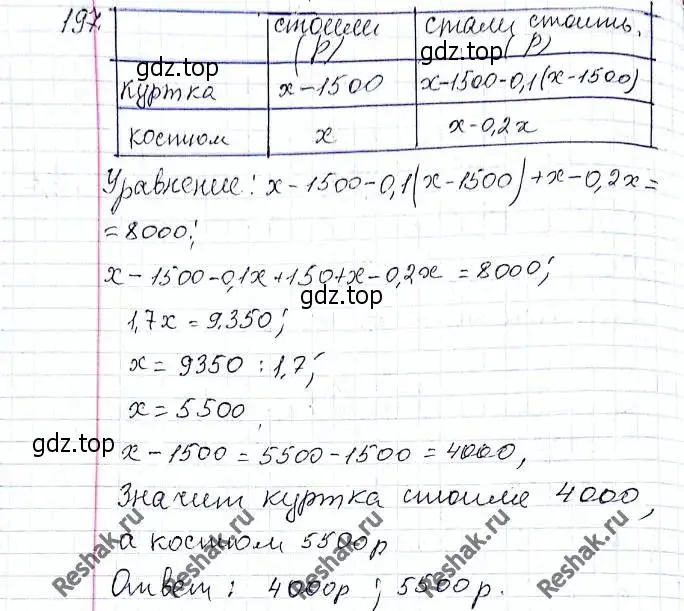 197.
стоили (р)
стали стоить. (р)
куртка x-1500 x-1500-0,1(x-1500)
костюм x x-0,2x
Уравнение: x-1500-0,1(x-1500)+x-0,2x=
=8000;
x-1500-0,1x+150+x-0,2x=8000;
1,7x=9.350;
x=9350:1,7;
x=5500
x-1500=5500-1500=4000,
Значит куртка стоила 4000,
а костюм 5500р
Ответ: 4000р; 5500р.
gdz.top
gdz.top
gdz.top
gdz.top
gdz.top
gdz.top
Reshak.ru
Reshak.ru
Reshak.ru